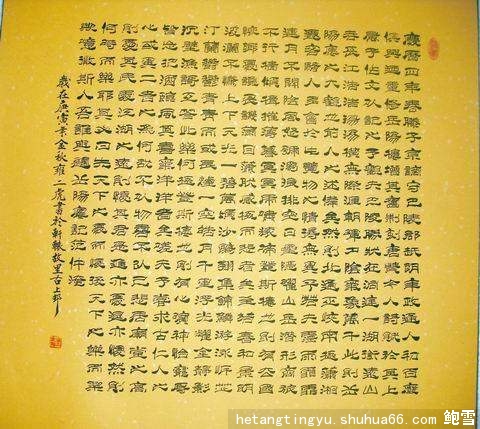 慶曆四年春滕子京謫守巴陵郡越明年政通人和百廢
俱興乃重修岳陽樓增其舊制刻唐賢今人詩賦於其上
屬予作文以記之予觀夫巴陵勝狀在洞庭一湖銜遠山
吞長江浩浩湯湯橫無際涯朝暉夕陰氣象萬千此則岳
陽樓之大觀也前人之述備矣然則北通巫峽南極瀟湘
遷客騷人多會於此覽物之情得無異乎若夫霪雨霏霏
連月不開陰風怒號濁浪排空日星隱耀山岳潛形商旅
不行檣傾楫摧薄暮冥冥虎嘯猿啼登斯樓也則有去國
懷鄉憂讒畏譏滿目蕭然感極而悲者矣至若春和景明
波瀾不驚上下天光一碧萬頃沙鷗翔集錦鱗游泳岸芷
汀蘭鬱鬱青青而或長煙一空皓月千里浮光躍金靜影
沉璧漁歌互答此樂何極登斯樓也則有心曠神怡寵辱
皆忘把酒臨風其喜洋洋者矣嗟夫予嘗求古仁人之
心或異二者之為何哉不以物喜不以己悲居廟堂之高
則憂其民處江湖之遠則憂其君是進亦憂退亦憂然則
何時而樂耶其必曰先天下之憂而憂後天下之樂而樂
歟噫微斯人吾誰與歸岳陽樓記范仲淹
歲在庚寅年金秋雍二虎書於軒轅故里古上邽
hetangtingyu.shuhua66.com 鲍雪